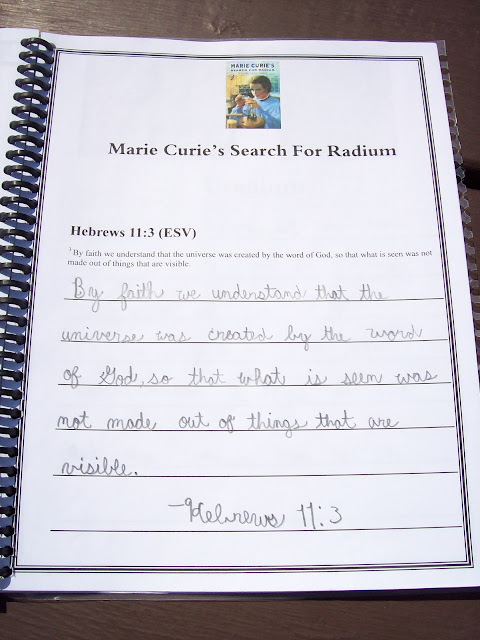 MARIE CURIE'S
SEARCH FOR RADIUM
Marie Curie's Search For Radium
Hebrews 11:3 (ESV)
3 By faith we understand that the universe was created by the word of God, so that what is seen was not
made out of things that are visible.
By faith we understand that the
universe was created by the word
of God, so that what is seen was
not made out of things that are
visible.
-Hebrews 11:3